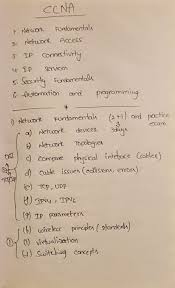 CCNA
1. Network Fundamentals
2. Network Access
3. IP Connectivity
4. IP services
5. Security Fundamentals
6. Automation and programming
1) Network Fundamentals (2+1) and practice
3days exam
a) Network devices
b) Network Topologies
c) Compare physical interface (cables)
d) Cable issues (collisions, errors)
e) TCP, UDP
f) IPV4, IPV6
g) IP parameters
h) wireless principles (standards)
i) Virtualization
j) Switching concepts